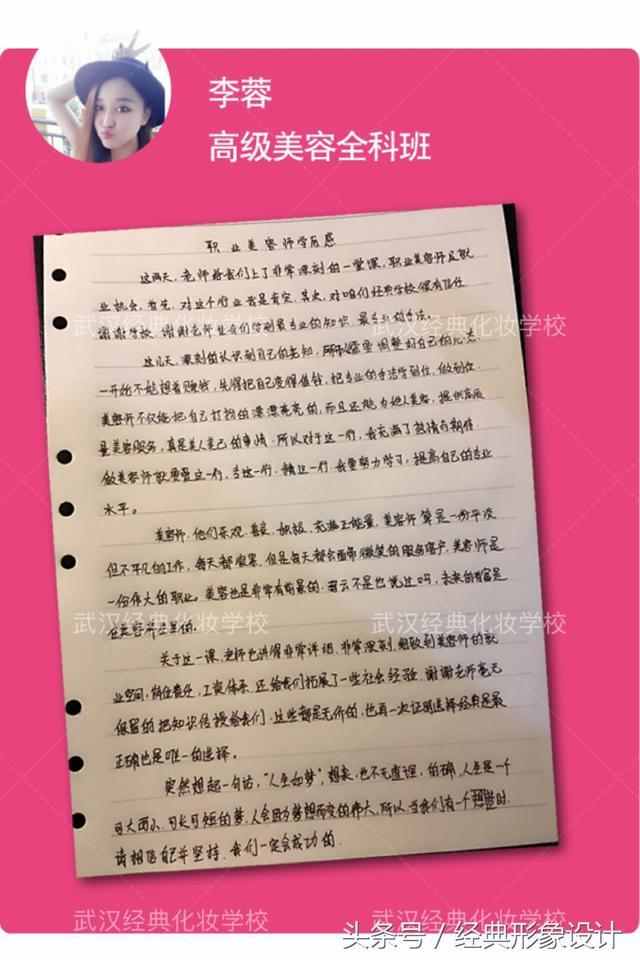 李蓉
高级美容全科班
职业美容师学后感
这两天,老师给我们上了非常深刻的一堂课,职业美容师及就
业机会,首先,对这个行业我是肯定,其次,对咱们经典学校很有信任
谢谢学校,谢谢老师让我们学到最专业的知识,最专业的手法。
这几天,深刻的认识到自己的无知,所以需要调整好自己的心态.
一开始不能想着赚钱,先得把自己变得值钱,把专业的手法学到位,做到位.
美容师不仅能把自己打扮的漂漂亮亮的,而且还能为他人美容,提供高质
量美容服务,真是美人美己的事情.所以对于这一行,我充满了热情与期待.
做美容师就要爱这一行,专这一行.精这一行.我要努力学习,提高自己的专业
水平。
美容师,他们乐观.善良.积极.充满正能量,美容师算是一份平凡
但不平凡的工作,每天都很累,但是每天都会面带微笑的服务客户,美容师是
一份伟大的职业,美容也是非常有前景的.马云不是也说过吗,未来的首富是
在美容行业里的.
关于这一课,老师也讲得非常详细,非常深刻,细致到美容师的就
业空间,岗位责任,工资体系.还给我们拓展了一些社会经验,谢谢老师毫无
保留的把知识传授给我们,这些都是无价的,也再一次证明选择经典是最
正确也是唯一的选择。
突然想起一句话,"人生如梦",想来,也不无道理,的确,人生是一个
可大而小,可长可短的梦,人会因为梦想而变的伟大,所以,当我们有一个时
请相信自己并坚持.我们一定会成功的.
武汉经典化妆学校
武汉经典化妆学校
武汉经典化妆学校
武汉经典化妆学校
武汉经典化妆学校
武汉经典化妆学校
头条号/经典形象设计